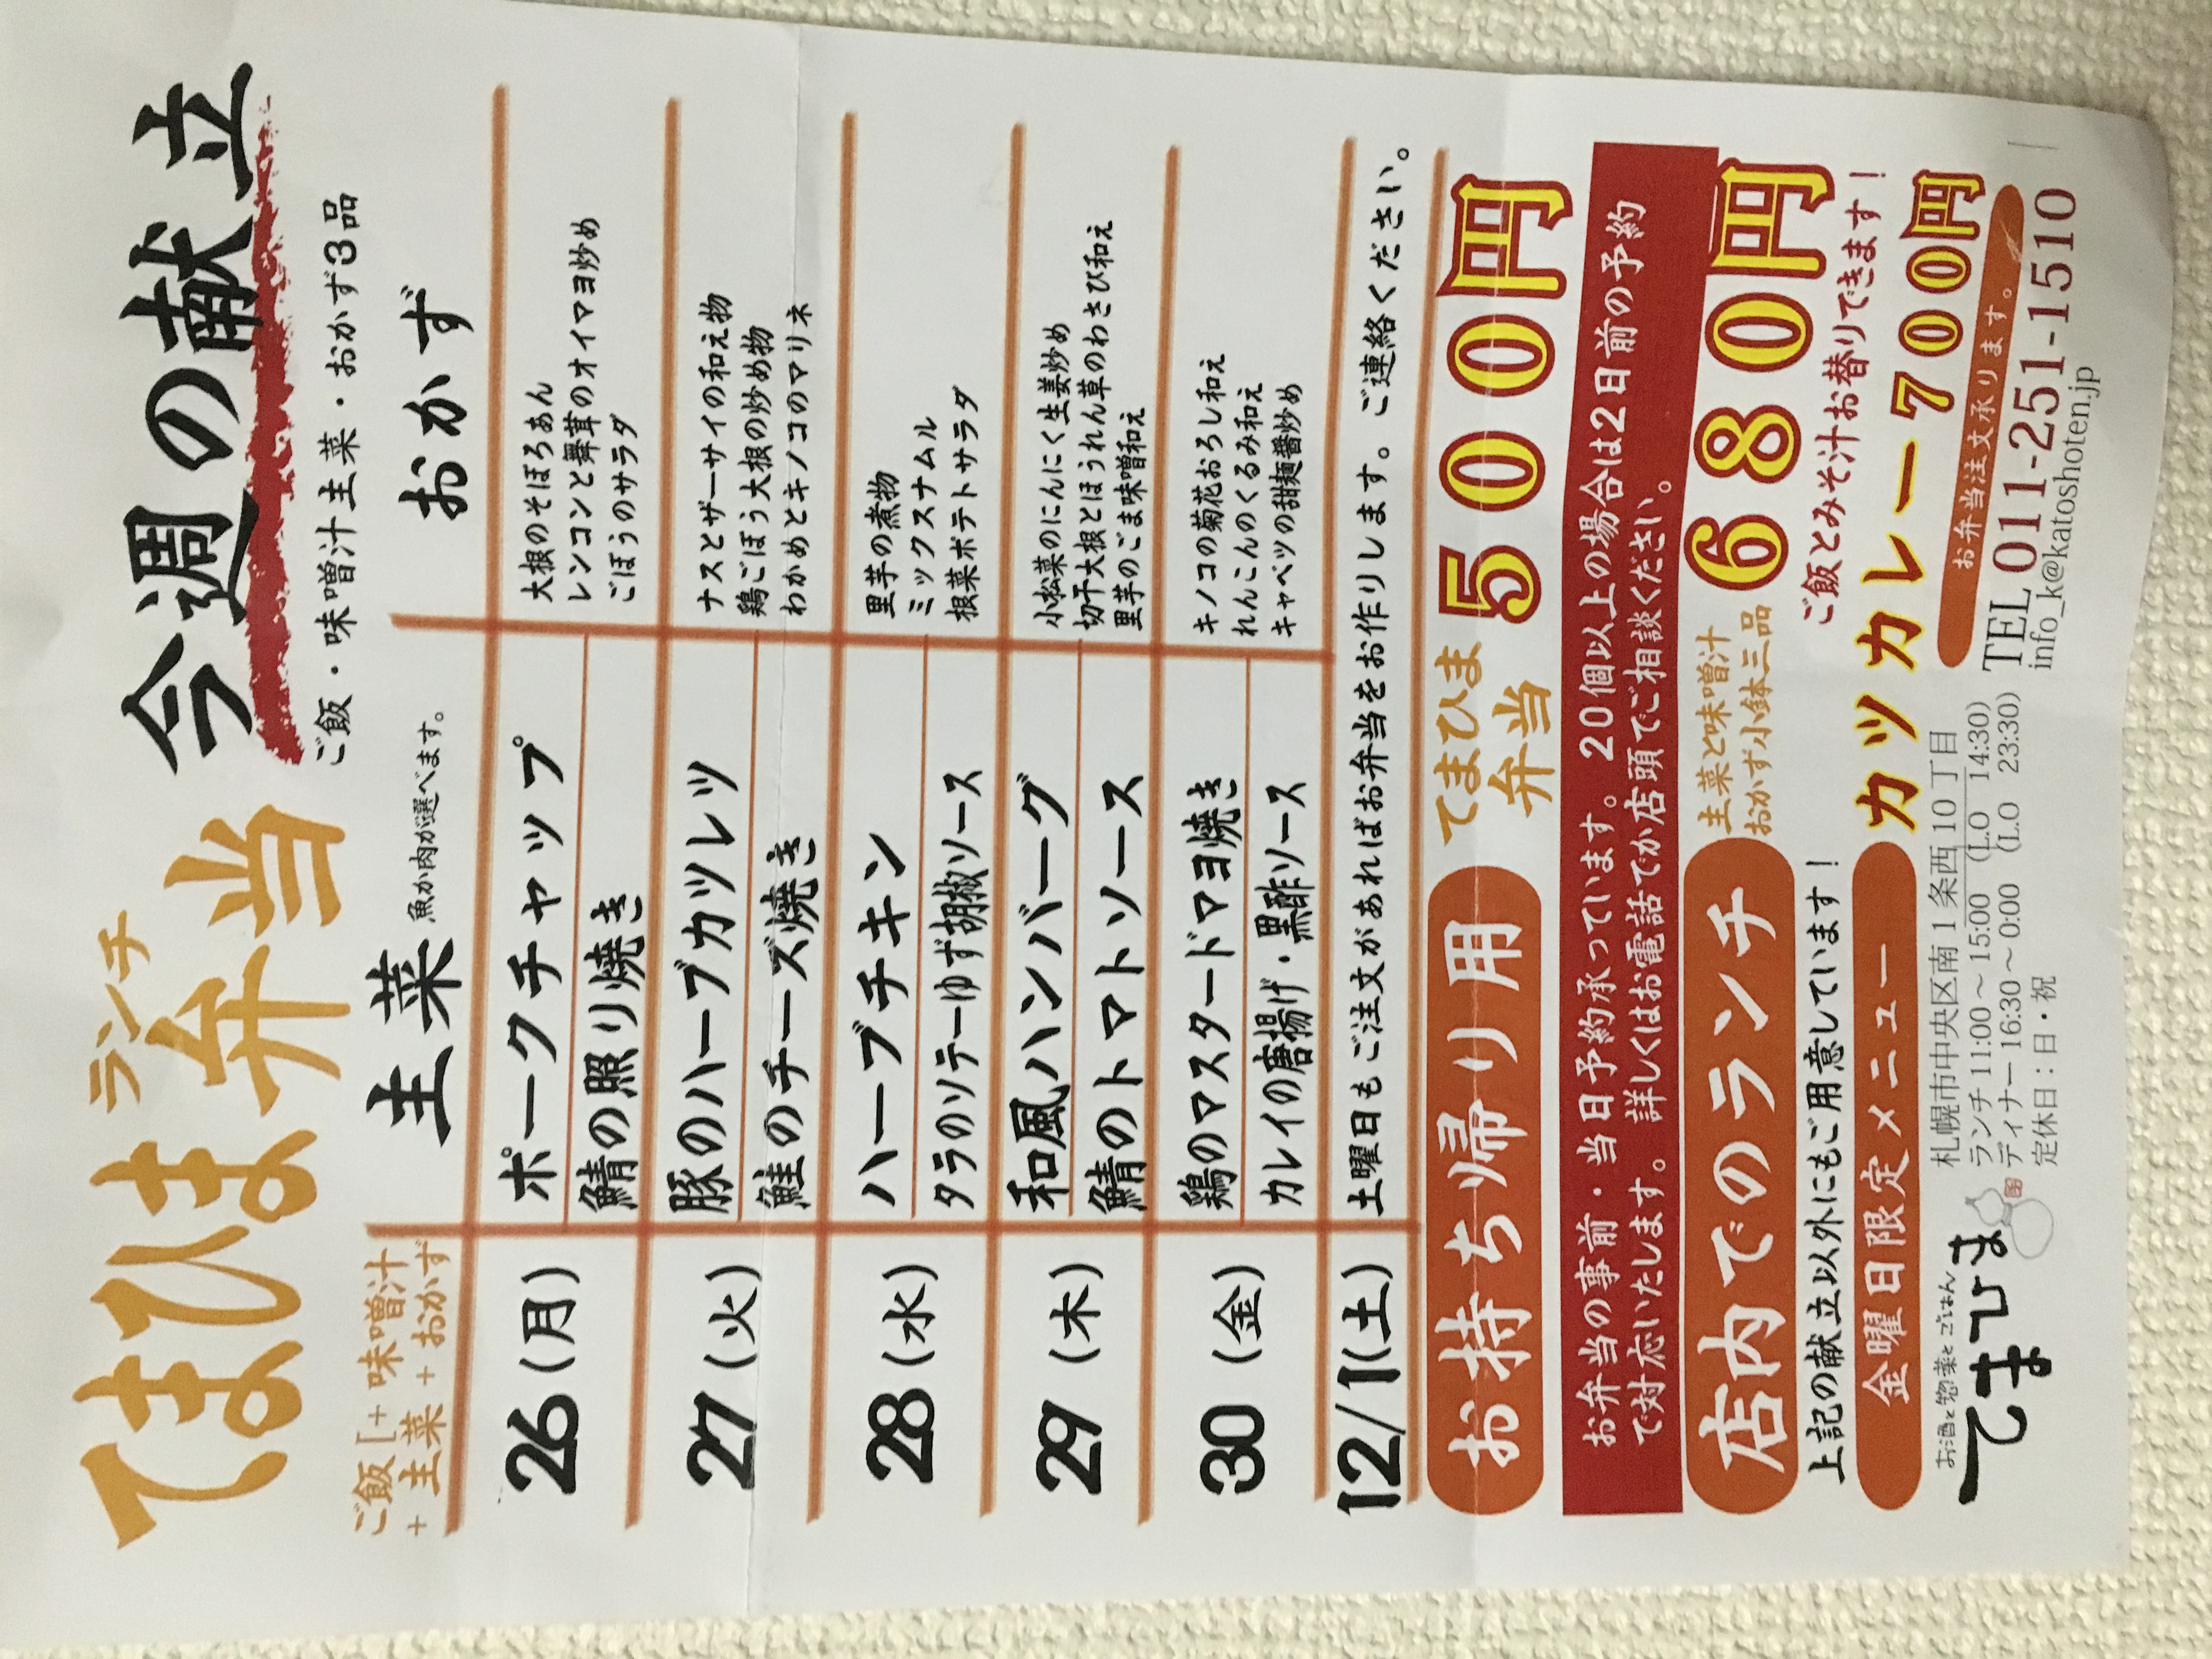 てまひま ランチ弁当 今週の献立
ご飯・味噌汁主菜・おかず3品
ご飯[+味噌汁
+主菜+おかず
主菜 魚か肉が選べます。
おかず
26(月)
ポークチャップ
鯖の照り焼き
大根のそぼろあん
レンコンと舞茸のオイマヨ炒め
ごぼうのサラダ
27(火)
豚のハーブカツレツ
鮭のチーズ焼き
ナスとザーサイの和え物
鶏ごぼう大根の炒め物
わかめとキノコのマリネ
28(水)
ハーブチキン
タラのソテーゆず胡椒ソース
里芋の煮物
ミックスナムル
根菜ポテトサラダ
29(木)
和風ハンバーグ
鯖のトマトソース
小松菜のにんにく生姜炒め
切干大根とほうれん草のわさび和え
里芋のごま味噌和え
30(金)
鶏のマスタードマヨ焼き
カレイの唐揚げ・黒酢ソース
キノコの菊花おろし和え
れんこんのくるみ和え
キャベツの甜麺醤炒め
12/1(土)
土曜日もご注文があればお弁当をお作りします。ご連絡ください。
お持ち帰り用
てまひま
弁当
500円
お弁当の事前・当日予約承っています。20個以上の場合は2日前の予約
で対応いたします。詳しくはお電話でか店頭でご相談ください。
店内でのランチ
主菜と味噌汁
おかず小鉢三品
680円
上記の献立以外にもご用意しています!
ご飯とみそ汁お替りできます!
金曜日限定メニュー
カツカレー700円
お酒と惣菜とごはん
てまひま
札幌市中央区南1条西10丁目
ランチ 11:00～15:00 (L.O 14:30)
ディナー 16:30～0:00 (L.O 23:30)
定休日:日・祝
お弁当注文承ります。
TEL 011-251-1510
info_k@katoshoten.jp